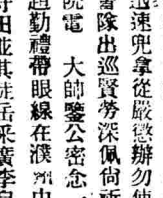 迅速兜拿從嚴懲辦勿使
書隊出巡賢勞深佩尙祈
院電　大師鑒公密念
趙勤禮帶眼線在濮州中
田並其徒岳來廣李